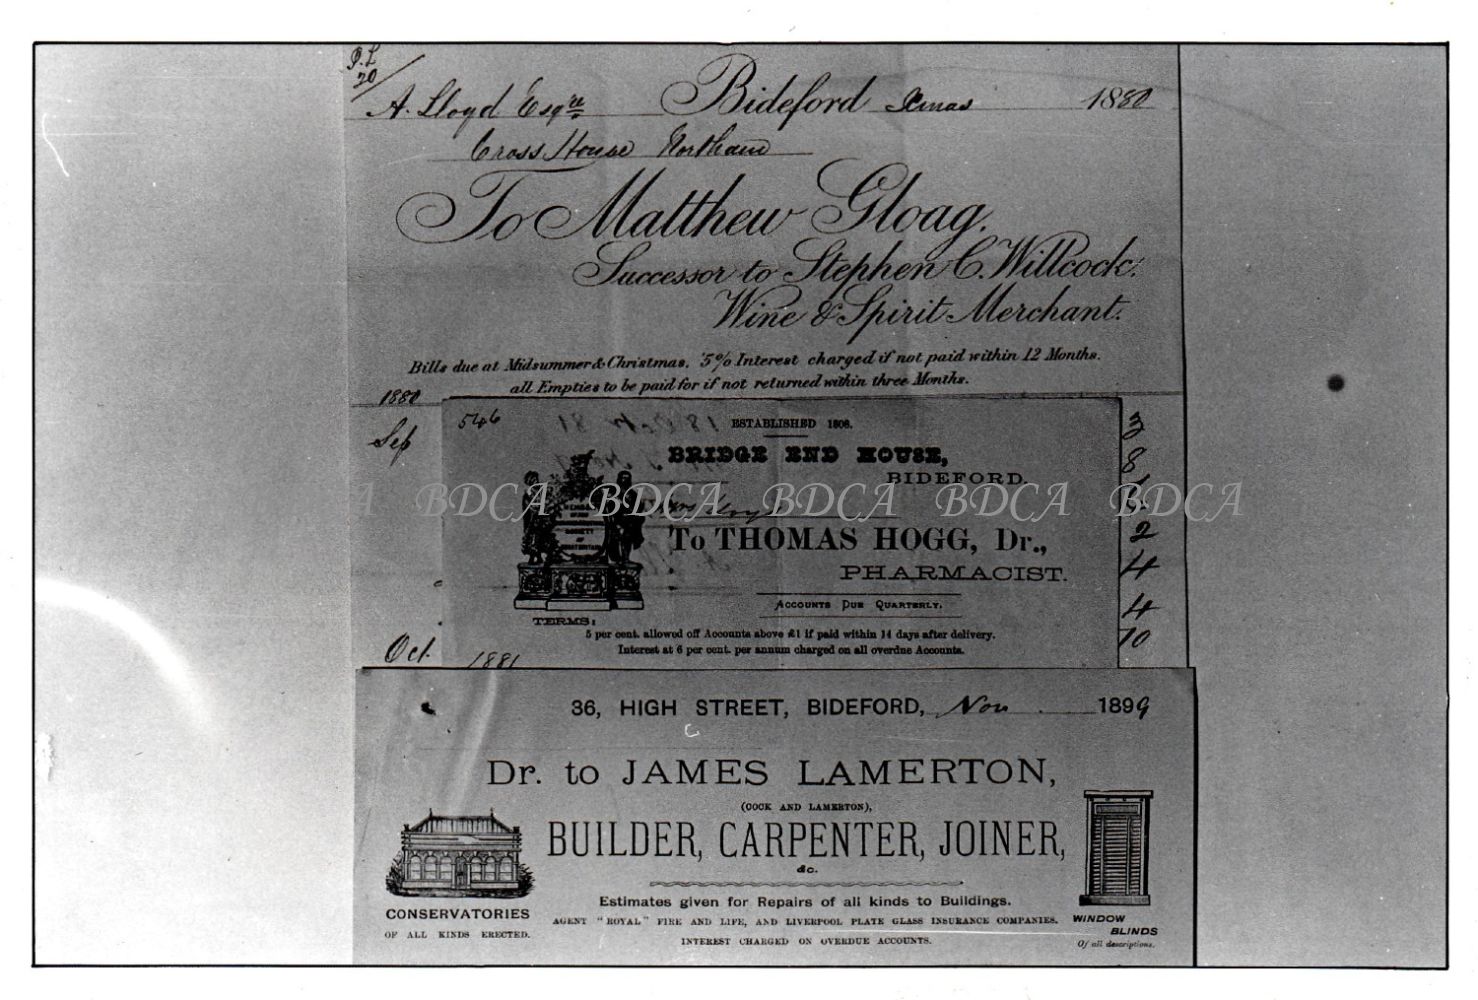 P.L
20/
A. Lloyd Esqre Bideford Xmas 1880
Cross House Northam
To Matthew Gloag.
Successor to Stephen C. Willcock.
Wine & Spirit Merchant.
Bills due at Midsummer & Christmas. 5% Interest charged if not paid within 12 Months.
all Empties to be paid for if not returned within three Months.
1880
Sep
546
ESTABLISHED 1808.
BRIDGE END HOUSE,
BIDEFORD.
BDCA BDCA BDCA BDCA BDCA
Lloyd
To THOMAS HOGG, Dr.,
PHARMACIST.
ACCOUNTS DUE QUARTERLY.
TERMS:
5 per cent. allowed off Accounts above £1 if paid within 14 days after delivery.
Interest at 6 per cent. per annum charged on all overdue Accounts.
3
8
2
4
4
10
Oct. 1881
36, HIGH STREET, BIDEFORD, Nov 1899
Dr. to JAMES LAMERTON,
(COCK AND LAMERTON),
BUILDER, CARPENTER, JOINER,
&c.
Estimates given for Repairs of all kinds to Buildings.
AGENT "ROYAL" FIRE AND LIFE, AND LIVERPOOL PLATE GLASS INSURANCE COMPANIES.
INTEREST CHARGED ON OVERDUE ACCOUNTS.
CONSERVATORIES
OF ALL KINDS ERECTED.
WINDOW
BLINDS
Of all descriptions.